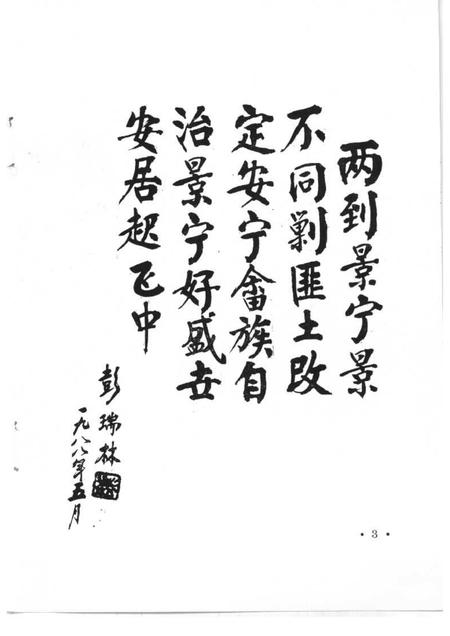 两到景宁景
不同剿匪土改
定安宁畲族自
治景宁好盛世
安居起飞中
彭瑞林
一九八八年五月
·3·